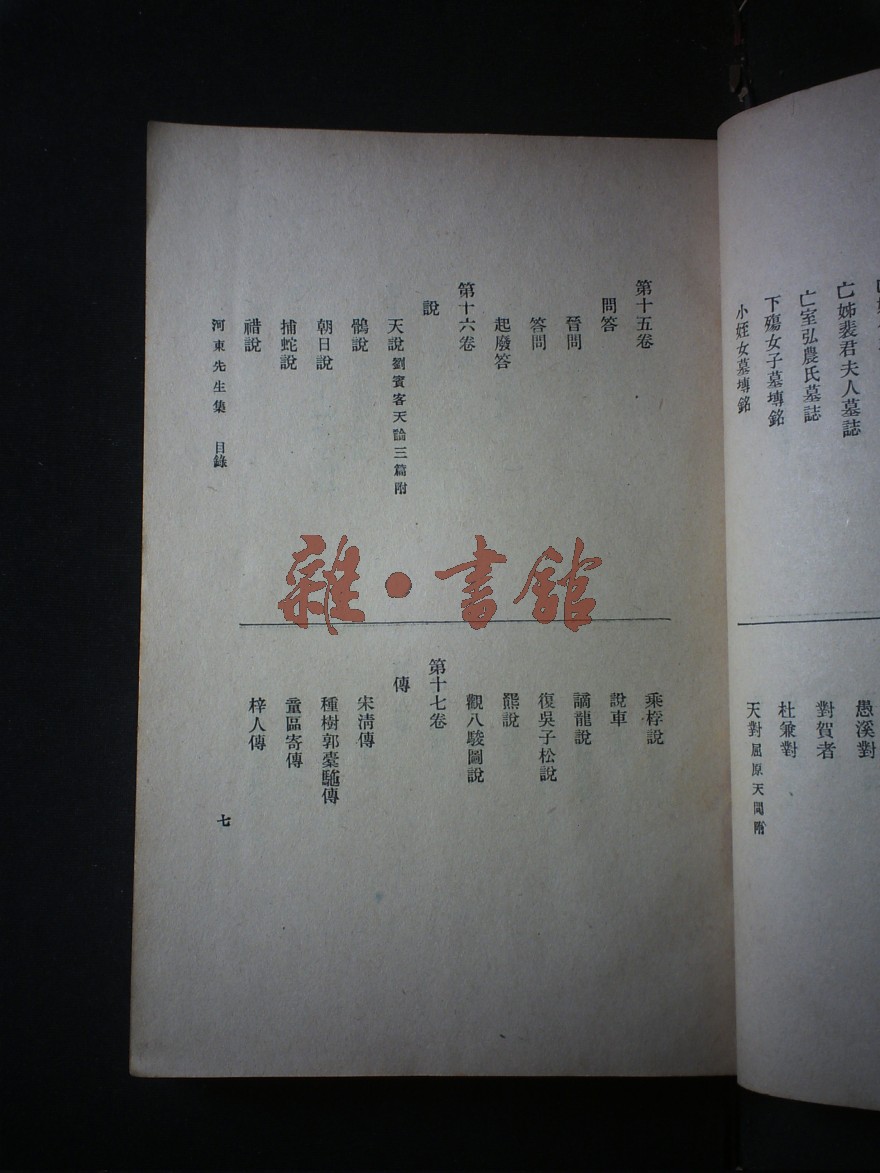 亡姊裴君夫人墓誌
亡室弘農氏墓誌
下殤女子墓塼銘
小姪女墓塼銘
愚溪對
對賀者
杜兼對
天對屈原天問附
第十五卷
問答
晉問
答問
起廢答
第十六卷
說
天說劉賓客天論三篇附
鶻說
朝日說
捕蛇說
䄍說
乘桴說
說車
謫龍說
復吳子松說
羆說
觀八駿圖說
第十七卷
傳
宋清傳
種樹郭橐駞傳
童區寄傳
梓人傳
河東先生集 目錄
七
雜·書館